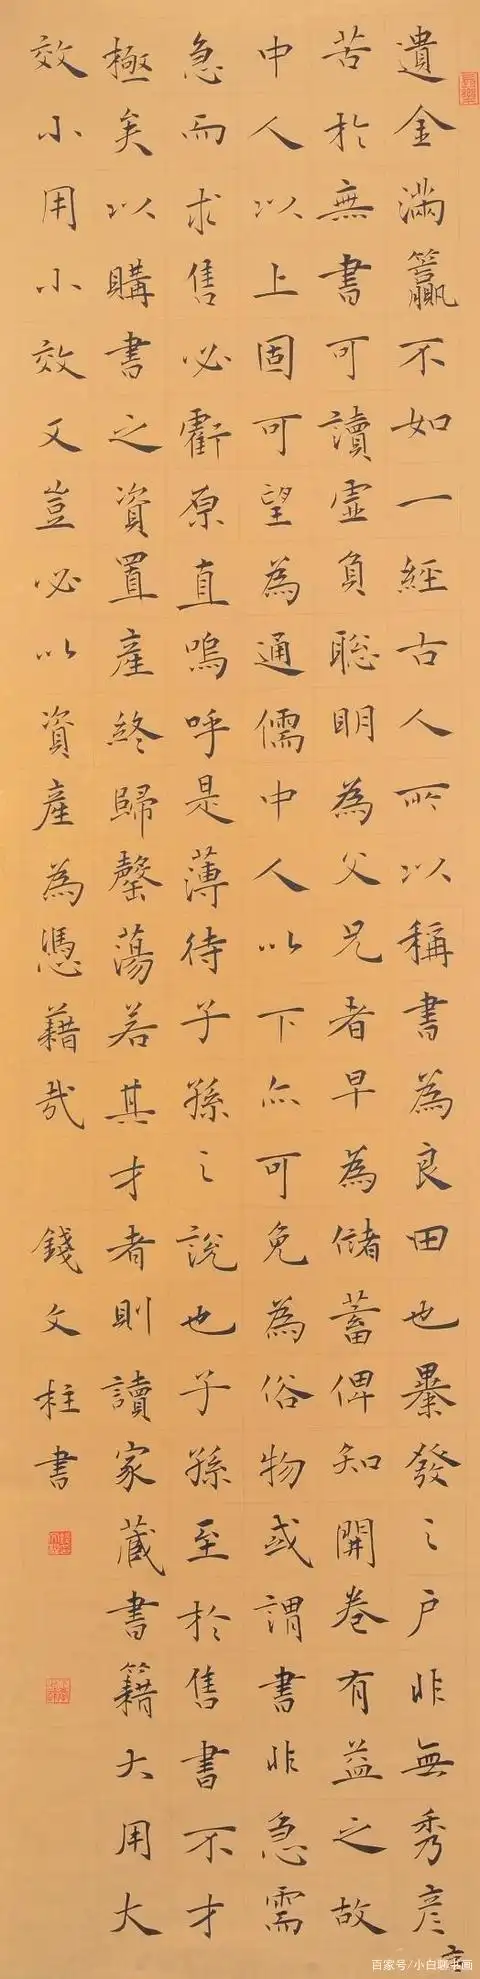 遺金滿籯不如一經古人所以稱書為良田也暴發之戶非無秀彥
苦於無書可讀虛負聰明為父兄者早為儲蓄俾知開卷有益之故
中人以上固可望為通儒中人以下亦可免為俗物或謂書非急需
急而求售必虧原直嗚呼是薄待子孫之說也子孫至於售書不才
極矣以購書之資置產終歸罄蕩若其才者則讀家藏書籍大用大
效小用小效又豈必以資產為憑藉哉 錢文柱書
百家号/小白聊书画